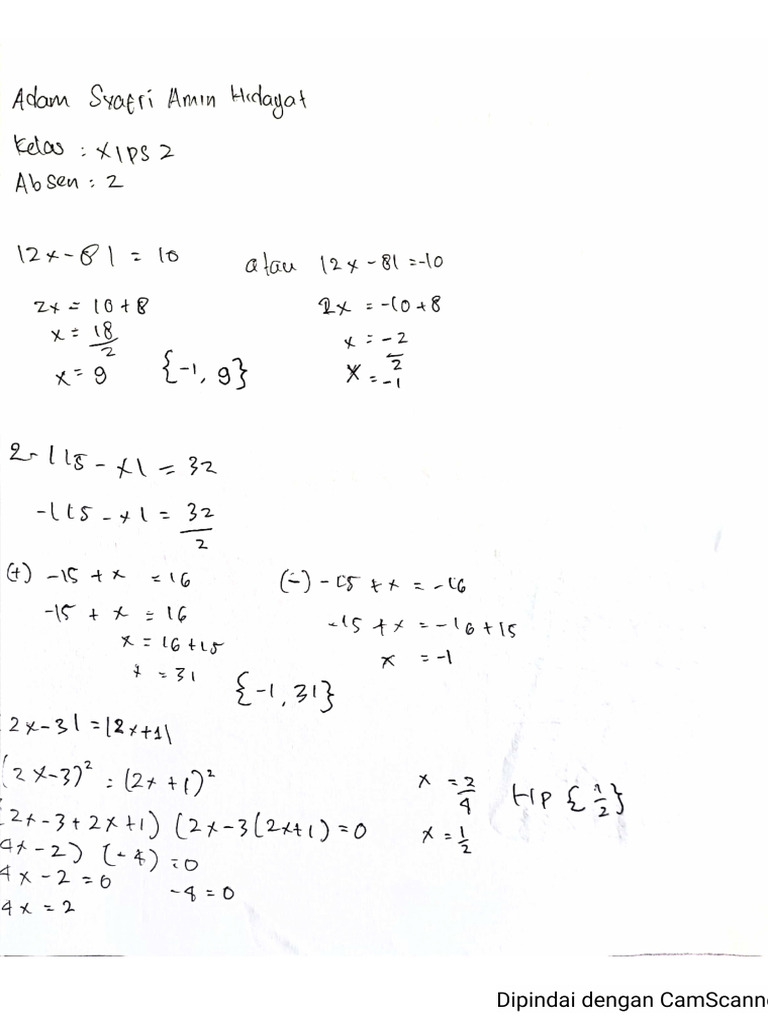 Adam Syafri Amin Hidayat
Kelas : X IPS 2
Absen : 2
|2x - 8| = 10 atau |2x - 8| = -10
2x = 10 + 8 2x = -10 + 8
x = 18/2 x = -2/2
x = 9 {-1, 9} x = -1
2 - |15 - x| = 32
-|15 - x| = 32/2
(+) -15 + x = 16 (-) -15 + x = -16
-15 + x = 16 -15 + x = -16 + 15
x = 16 + 15 x = -1
x = 31 {-1, 31}
2x - 3| = |2x + 1|
(2x - 3)² = (2x + 1)² x = 2/4 HP {1/2}
(2x - 3 + 2x + 1) (2x - 3 (2x + 1) = 0 x = 1/2
4x - 2) (-4) = 0
4x - 2 = 0 -4 = 0
4x = 2
Dipindai dengan CamScanne